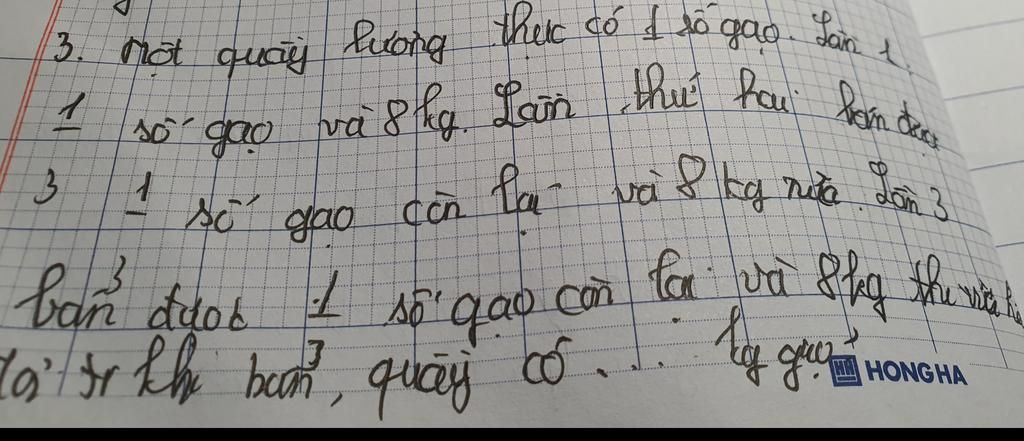 3. Một quầy lương thực có 1 số gạo. Lần 1,
1 số gạo và 8 kg. Lần thứ hai bán được
3 1 số gạo còn lại và 8 kg nữa. Lần 3
3
bán được 1 số gạo còn lại và 8 kg thì vừa
3
khi bán, quầy có ... kg gạo?
HONG HA